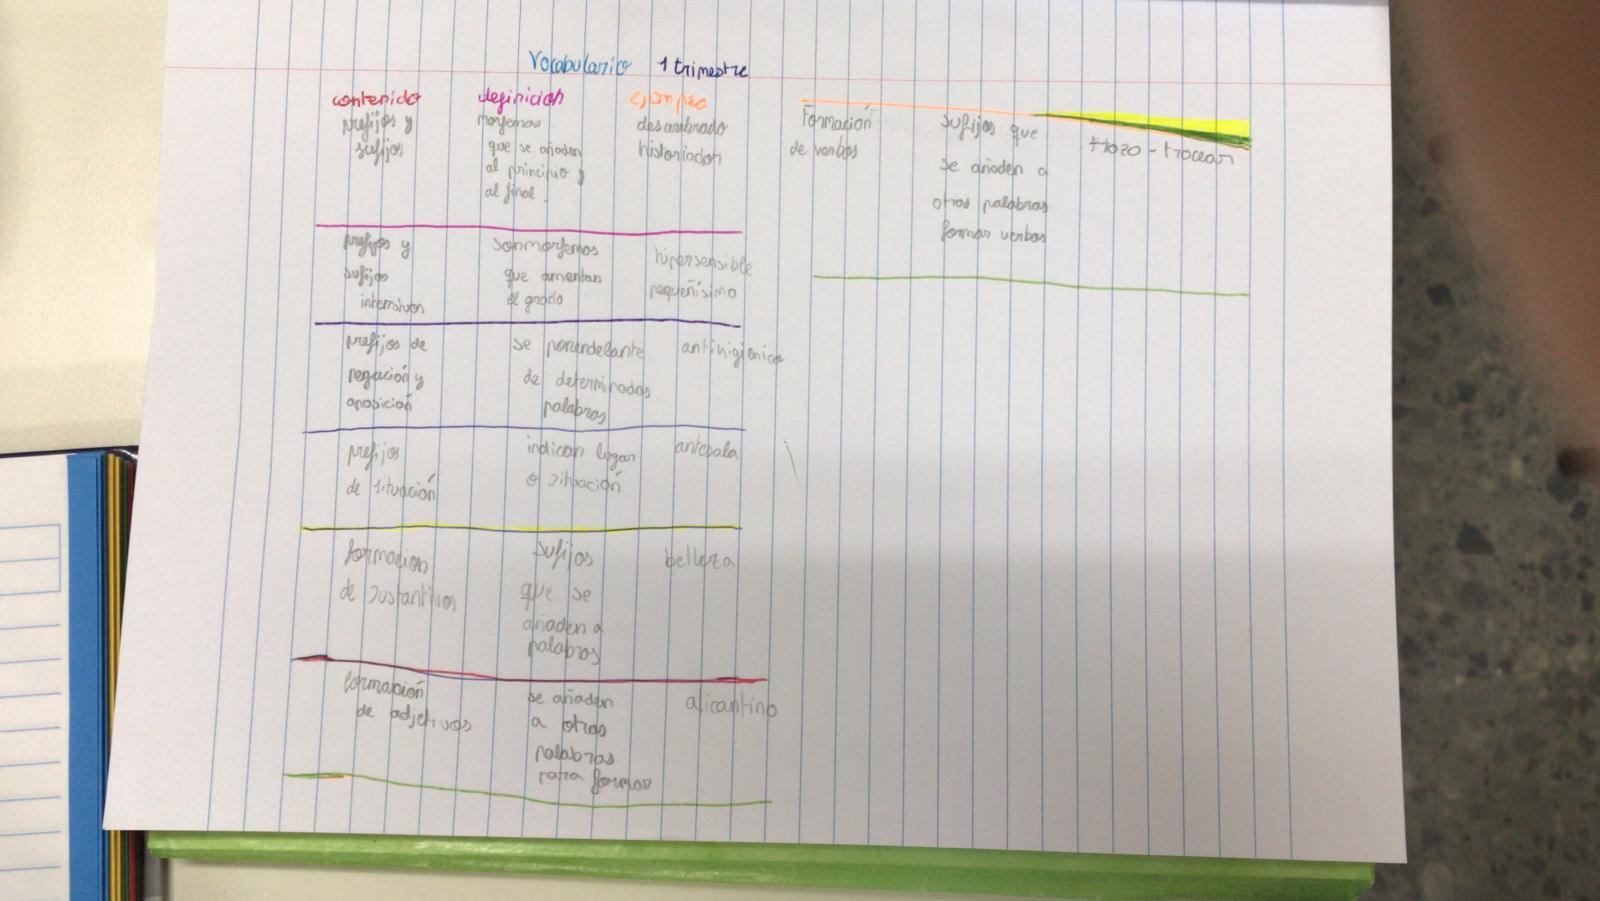 Vocabulario 1 trimestre
contenido definicion ejemplo
prefijos y
sufijos
morfemas
que se añaden
al principio y
al final.
desanimbrado
historiador
prefijos y
sufijos
intensivos
sonmorfemos
que amentan
el grado
hipersensible
pequeñísimo
prefijos de
negación y
oposición
se ponendelante
de determinadas
palabras
antihigienico
prefijos
de situación
indican lugar
o situación
antesala
formacion
de sustantivos
sufijos
que se
añaden a
palabras
belleza
formación
de adjetivos
se añaden
a otras
palabras
para formar
alicantino
Formación
de verbos
sufijos que
se añaden a
otras palabras
formar verbos
trozo - trocear